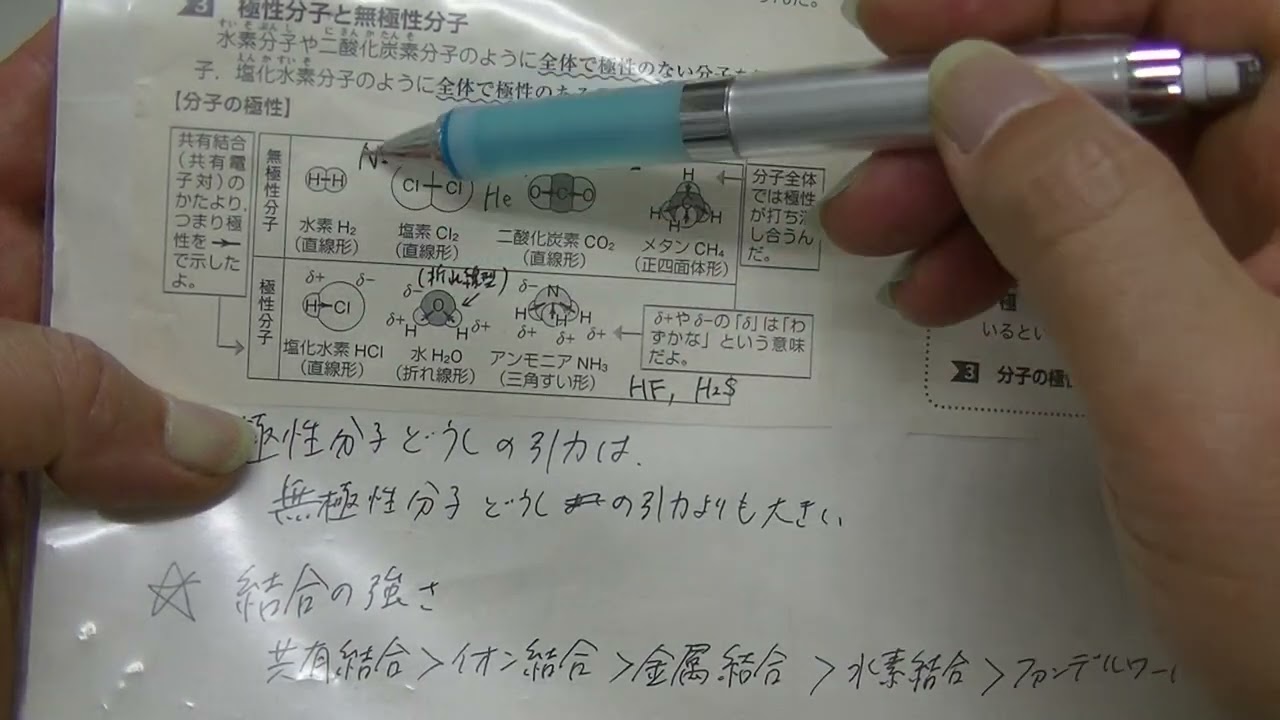 3 極性分子と無極性分子
すいそぶんし にさんかたんそ
水素分子や二酸化炭素分子のように全体で極性のない分子
えんかすいそ
子．塩化水素分子のように全体で極性のある
【分子の極性】
共有結合
(共有電
子対)の
かたより，
つまり極
性を→
で示した
よ。
無極性分子
H H
水素 H₂
(直線形)
N
Cl Cl
塩素 Cl₂
(直線形)
He
O C O
二酸化炭素 CO₂
(直線形)
H
H H
H
メタン CH₄
(正四面体形)
分子全体
では極性
が打ち消
し合うん
だ。
極性分子
δ+ δ-
H Cl
塩化水素 HCl
(直線形)
(折れ線型)
δ-
O
δ+ H H δ+
水 H₂O
(折れ線形)
δ-
N
H H H
δ+ δ+ δ+
アンモニア NH₃
(三角すい形)
δ+やδ-の「δ」は「わ
ずかな」という意味
だよ。
HF, H₂S
極性分子どうしの引力は、
無極性分子どうしの引力よりも大きい
☆ 結合の強さ
共有結合>イオン結合>金属結合>水素結合>ファンデルワー
いるとい
3 分子の極